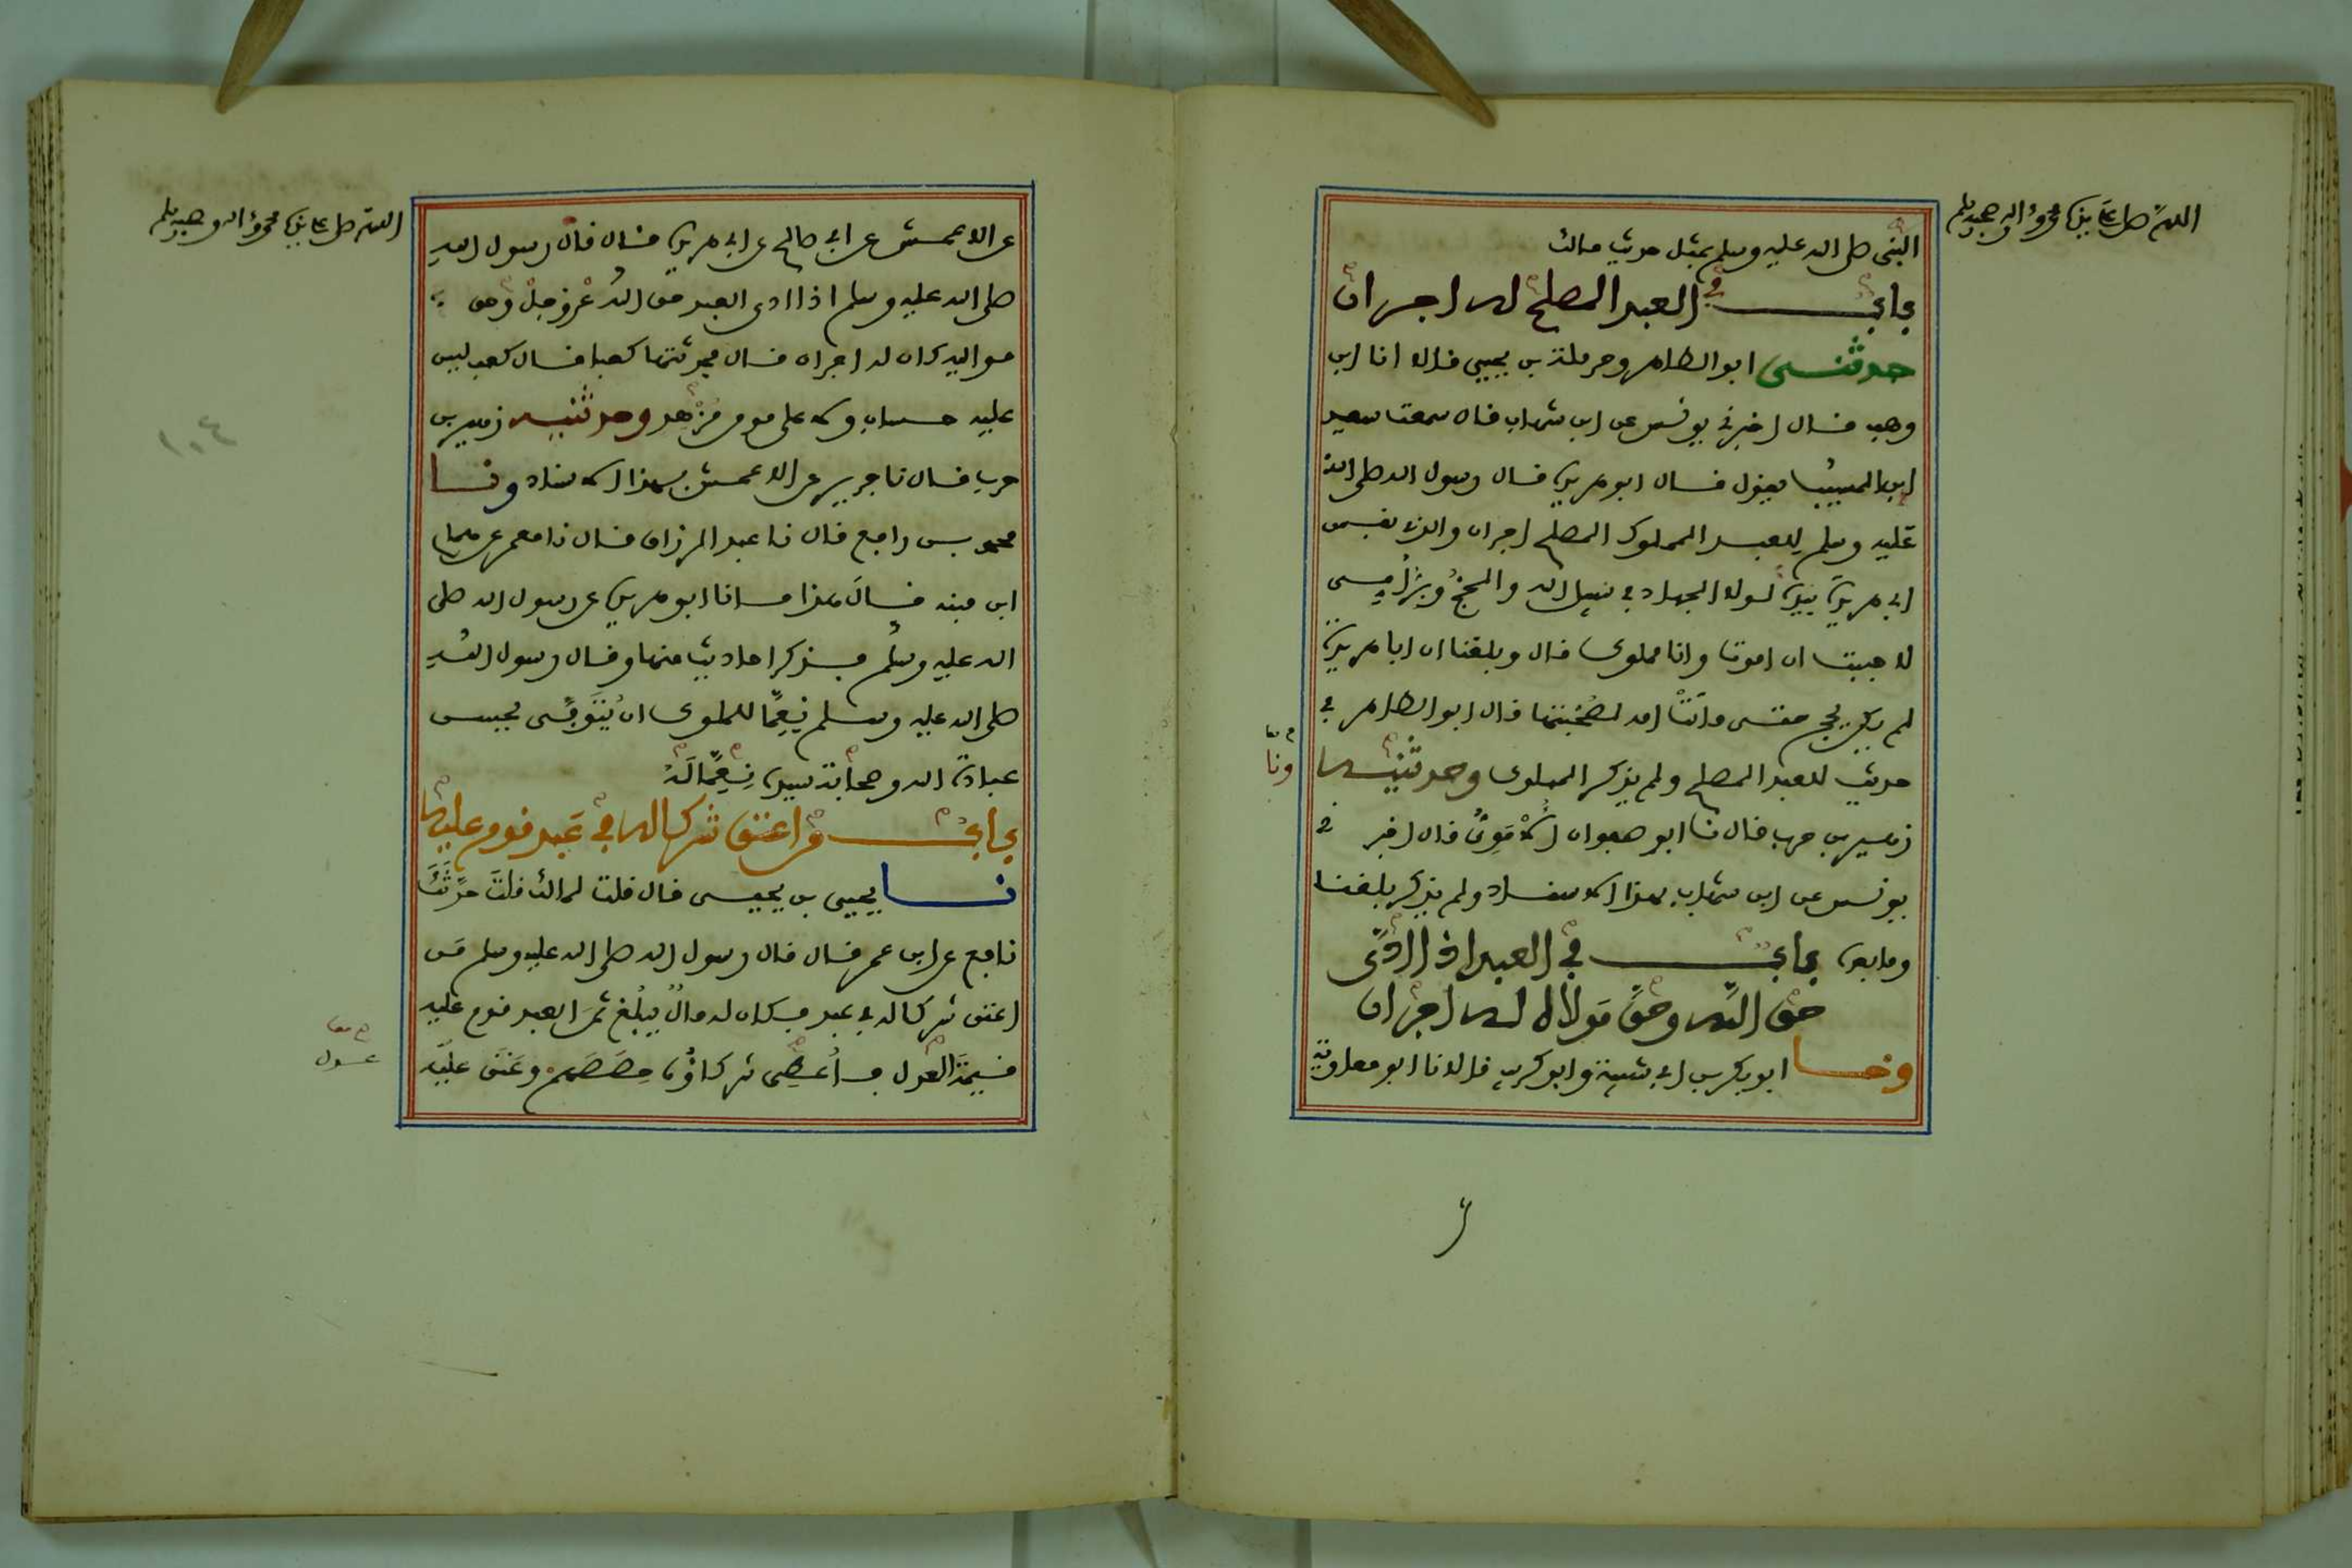 اللهم صل على نبينا محمد واله وصحبه وسلم
النبي صلى الله عليه وسلم بمثل حديث مالك
باب في العبد المصلح له اجران
حدثنى ابو الطاهر وحرملة بن يحيى قالا انا ابن
وهب قال اخبرني يونس عن ابن شهاب قال سمعت سعيد
ابن المسيب يقول قال ابو هريرة قال رسول الله صلى الله
عليه وسلم للعبد المملوك المصلح اجران والذي نفس
ابي هريرة بيده لولا الجهاد في سبيل الله والحج وبر امي
لاحببت ان اموت وانا مملوك قال وبلغنا ان ابا هريرة
لم يكن يحج حتى ماتت امه لصحبتها قال ابو الطاهر في
حديثه للعبد المصلح ولم يذكر المملوك وحدثنيه
ونا
زهير بن حرب قال نا ابو صفوان الاموي قال اخبرني
يونس عن ابن شهاب بهذا الاسناد ولم يذكر بلغنا
وما بعده باب في العبد اذا ادى
حق الله وحق مولاه له اجران
ونا ابو بكر بن ابي شيبة وابو كريب قالا نا ابو معاوية
اللهم صل على نبينا محمد واله وصحبه وسلم
عن الاعمش عن ابي صالح عن ابي هريرة قال قال رسول الله
صلى الله عليه وسلم اذا ادى العبد حق الله عز وجل وحق
مواليه كان له اجران قال فحدثتها كعبا فقال كعب ليس
عليه حساب ولا على مومن مزهد وحدثنيه زهير بن
حرب قال نا جرير عن الاعمش بهذا الاسناد ونا
محمد بن رافع قال نا عبد الرزاق قال نا معمر عن همام
ابن منبه قال هذا ما نا ابو هريرة عن رسول الله صلى
الله عليه وسلم فذكر احاديث منها وقال رسول الله
صلى الله عليه وسلم نعما للمملوك ان يتوفى يحسن
عبادة الله وصحابة سيده نعما له
باب من اعتق شركا له في عبد قوم عليه
نا يحيى بن يحيى قال قلت لمالك قلت حدثك
نافع عن ابن عمر قال قال رسول الله صلى الله عليه وسلم من
اعتق شركا له في عبد فكان له مال يبلغ ثمن العبد قوم عليه
قيمة العدل فاعطي شركاؤه حصصهم وعتق عليه
عدل
١٠٤